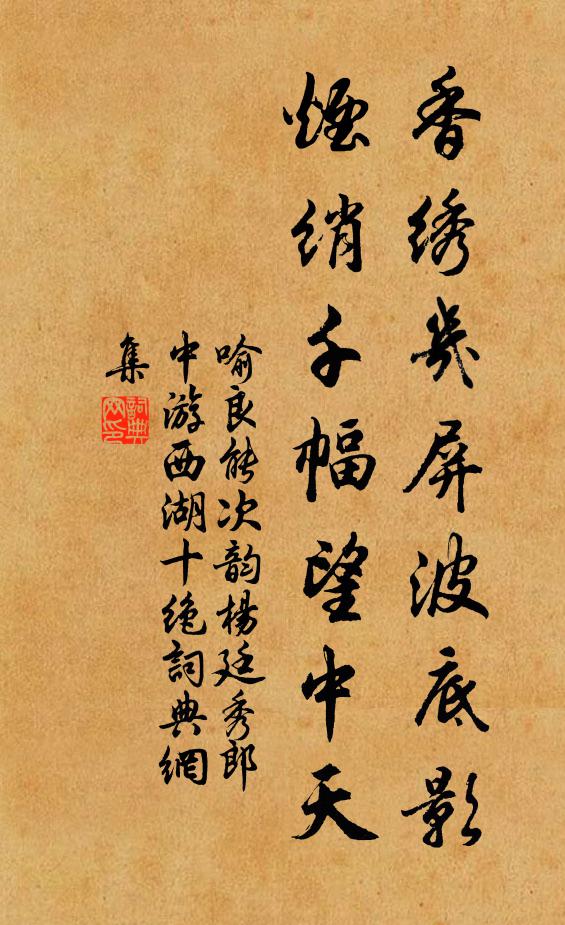 香绣幾屏波底影
煙绡千幅望中天
喻良能次韵楊廷秀郎
中游西湖十绝詞典網
集
詞典
网印